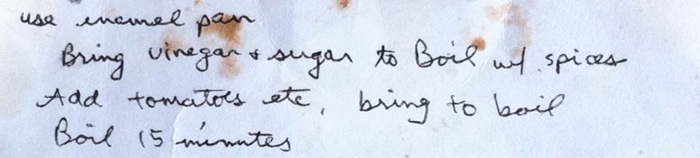 use enamel pan
Bring vinegar & sugar to Boil w/ spices
Add tomatoes etc, bring to boil
Boil 15 minutes